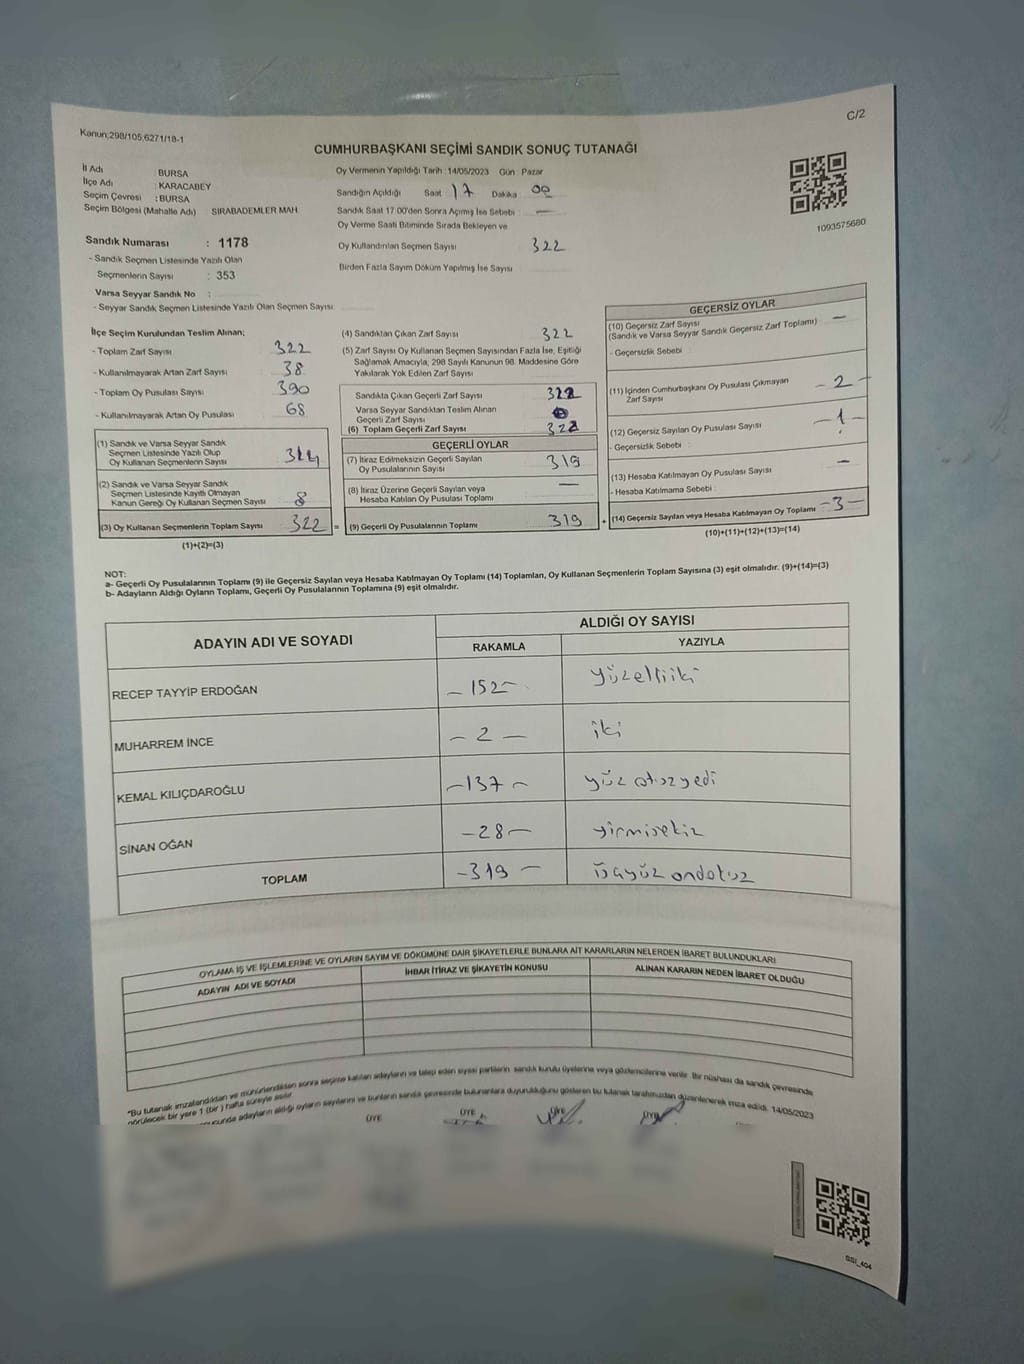 C/2
Kanun;298/105,6271/18-1
CUMHURBAŞKANI SEÇİMİ SANDIK SONUÇ TUTANAĞI
İl Adı : BURSA
İlçe Adı : KARACABEY
Seçim Çevresi : BURSA
Seçim Bölgesi (Mahalle Adı) SIRABADEMLER MAH.
Sandık Numarası : 1178
- Sandık Seçmen Listesinde Yazılı Olan
Seçmenlerin Sayısı : 353
Varsa Seyyar Sandık No :
- Seyyar Sandık Seçmen Listesinde Yazılı Olan Seçmen Sayısı
Oy Vermenin Yapıldığı Tarih :14/05/2023 Gün : Pazar
Sandığın Açıldığı Saat 17 Dakika 00
Sandık Saat 17.00'den Sonra Açılmış İse Sebebi : —
Oy Verme Saati Bitiminde Sırada Bekleyen ve
Oy Kullandırılan Seçmen Sayısı 322
Birden Fazla Sayım Döküm Yapılmış İse Sayısı
1093575680
İlçe Seçim Kurulundan Teslim Alınan;
- Toplam Zarf Sayısı 322
- Kullanılmayarak Artan Zarf Sayısı 38
- Toplam Oy Pusulası Sayısı 390
- Kullanılmayarak Artan Oy Pusulası 68
(1) Sandık ve Varsa Seyyar Sandık
Seçmen Listesinde Yazılı Olup
Oy Kullanan Seçmenlerin Sayısı 314
(2) Sandık ve Varsa Seyyar Sandık
Seçmen Listesinde Kayıtlı Olmayan
Kanun Gereği Oy Kullanan Seçmen Sayısı 8
(3) Oy Kullanan Seçmenlerin Toplam Sayısı 322 =
(1)+(2)=(3)
(4) Sandıktan Çıkan Zarf Sayısı 322
(5) Zarf Sayısı Oy Kullanan Seçmen Sayısından Fazla İse, Eşitliği
Sağlamak Amacıyla, 298 Sayılı Kanunun 98. Maddesine Göre
Yakılarak Yok Edilen Zarf Sayısı
Sandıkta Çıkan Geçerli Zarf Sayısı 322
Varsa Seyyar Sandıktan Teslim Alınan
Geçerli Zarf Sayısı
(6) Toplam Geçerli Zarf Sayısı 322
GEÇERLİ OYLAR
(7) İtiraz Edilmeksizin Geçerli Sayılan
Oy Pusulalarının Sayısı 319
(8) İtiraz Üzerine Geçerli Sayılan veya
Hesaba Katılan Oy Pusulası Toplamı —
(9) Geçerli Oy Pusulalarının Toplamı 319 +
GEÇERSİZ OYLAR
(10) Geçersiz Zarf Sayısı
(Sandık ve Varsa Seyyar Sandık Geçersiz Zarf Toplamı) —
- Geçersizlik Sebebi :
(11) İçinden Cumhurbaşkanı Oy Pusulası Çıkmayan
Zarf Sayısı - 2 -
(12) Geçersiz Sayılan Oy Pusulası Sayısı - 1 -
- Geçersizlik Sebebi :
(13) Hesaba Katılmayan Oy Pusulası Sayısı —
- Hesaba Katılmama Sebebi :
(14) Geçersiz Sayılan veya Hesaba Katılmayan Oy Toplamı - 3 -
(10)+(11)+(12)+(13)=(14)
NOT:
a- Geçerli Oy Pusulalarının Toplamı (9) ile Geçersiz Sayılan veya Hesaba Katılmayan Oy Toplamı (14) Toplamları, Oy Kullanan Seçmenlerin Toplam Sayısına (3) eşit olmalıdır. (9)+(14)=(3)
b- Adayların Aldığı Oyların Toplamı, Geçerli Oy Pusulalarının Toplamına (9) eşit olmalıdır.
ADAYIN ADI VE SOYADI
ALDIĞI OY SAYISI
RAKAMLA YAZIYLA
RECEP TAYYİP ERDOĞAN - 152 - yüzelliiki
MUHARREM İNCE - 2 - iki
KEMAL KILIÇDAROĞLU - 137 - yüz otuzyedi
SİNAN OĞAN - 28 - yirmisekiz
TOPLAM - 319 - üçyüz ondokuz
OYLAMA İŞ VE İŞLEMLERİNE VE OYLARIN SAYIM VE DÖKÜMÜNE DAİR ŞİKAYETLERLE BUNLARA AİT KARARLARIN NELERDEN İBARET BULUNDUKLARI
ADAYIN ADI VE SOYADI İHBAR İTİRAZ VE ŞİKAYETİN KONUSU ALINAN KARARIN NEDEN İBARET OLDUĞU
*Bu tutanak imzalandıktan ve mühürlendikten sonra seçime katılan adayların ve talep eden siyasi partilerin sandık kurulu üyelerine veya gözlemcilerine verilir. Bir nüshası da sandık çevresinde
görülecek bir yere 1 (bir) hafta süreyle asılır.
sonucunda adayların aldığı oyların sayılarını ve bunların sandık çevresinde bulunanlara duyurulduğunu gösteren bu tutanak tarafımızdan düzenlenerek imza edildi. 14/05/2023
ÜYE ÜYE ÜYE ÜYE
SSİ_404